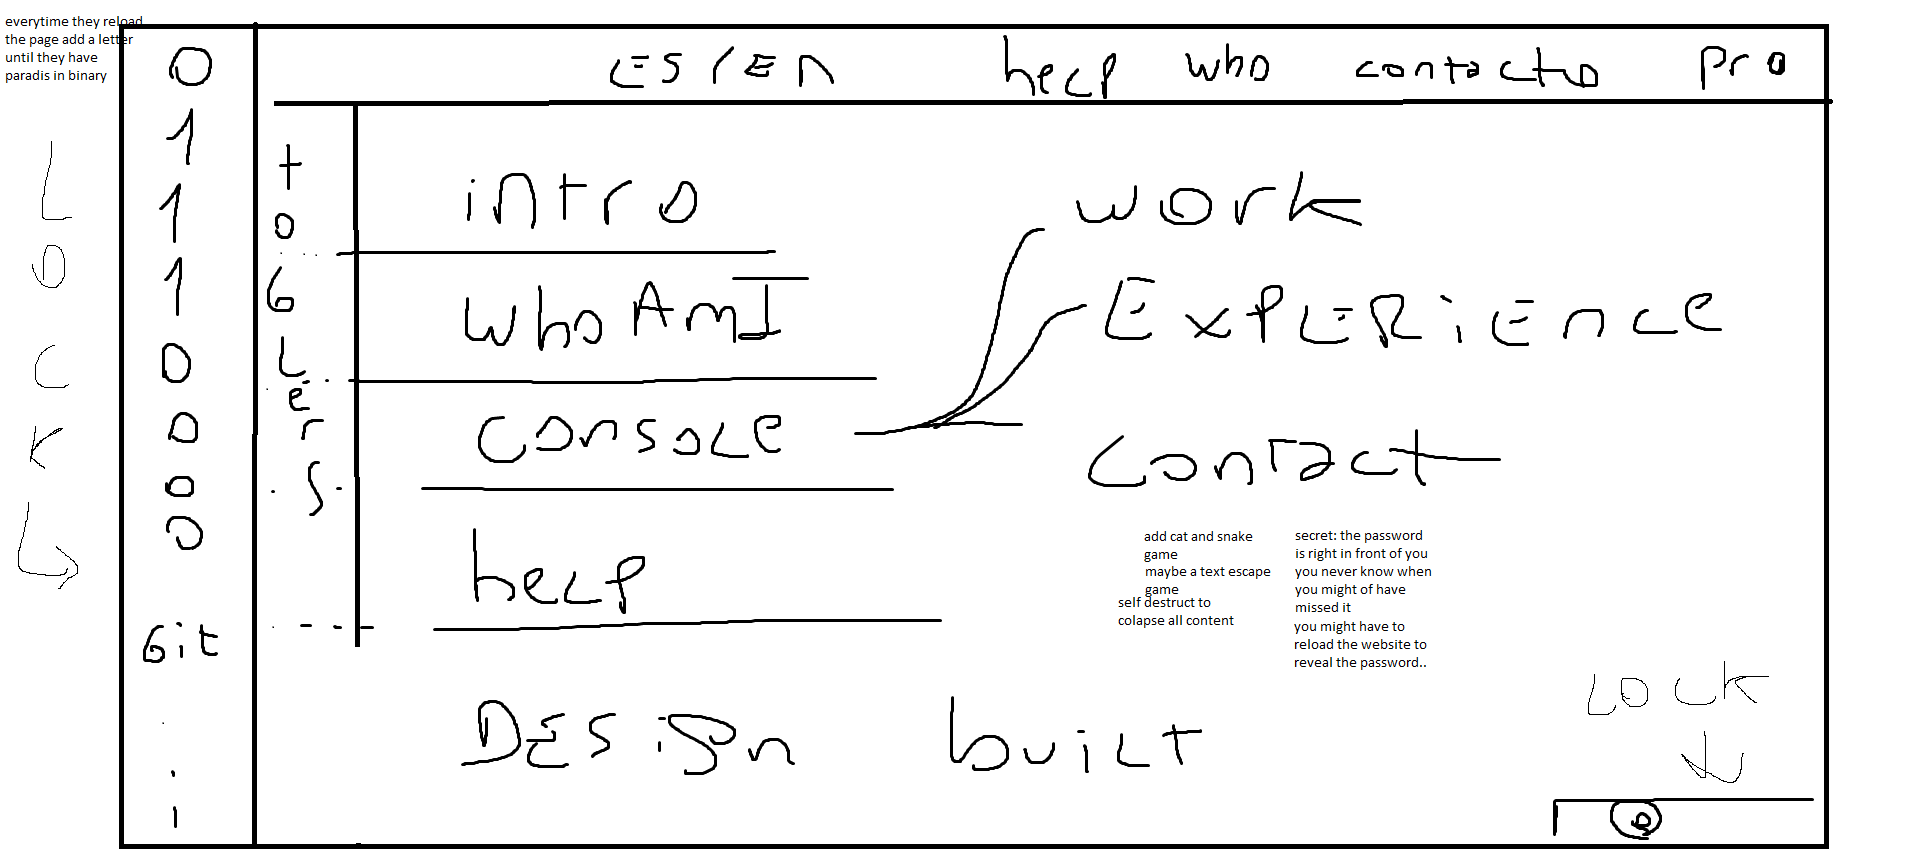 everytime they reload
the page add a letter
until they have
paradis in binary
L
O
C
K
0
1
1
1
0
0
0
0
Git
ES/EN help who contacto pro
toGLers
intro
who Am I
console
help
work
EXPERiENce
contact
add cat and snake
game
maybe a text escape
game
self destruct to
colapse all content
secret: the password
is right in front of you
you never know when
you might of have
missed it
you might have to
reload the website to
reveal the password..
DESign built
LOCK